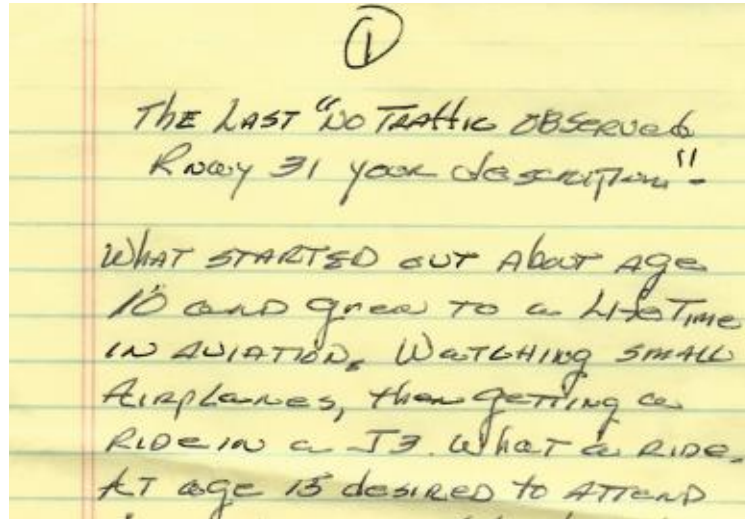 1
The Last "No Traffic Observed
Rnwy 31 your description"-
What started out about age
10 and grew to a Lifetime
in aviation. Watching small
Airplanes, then getting a
Ride in a J3. What a Ride.
At age 15 desired to attend